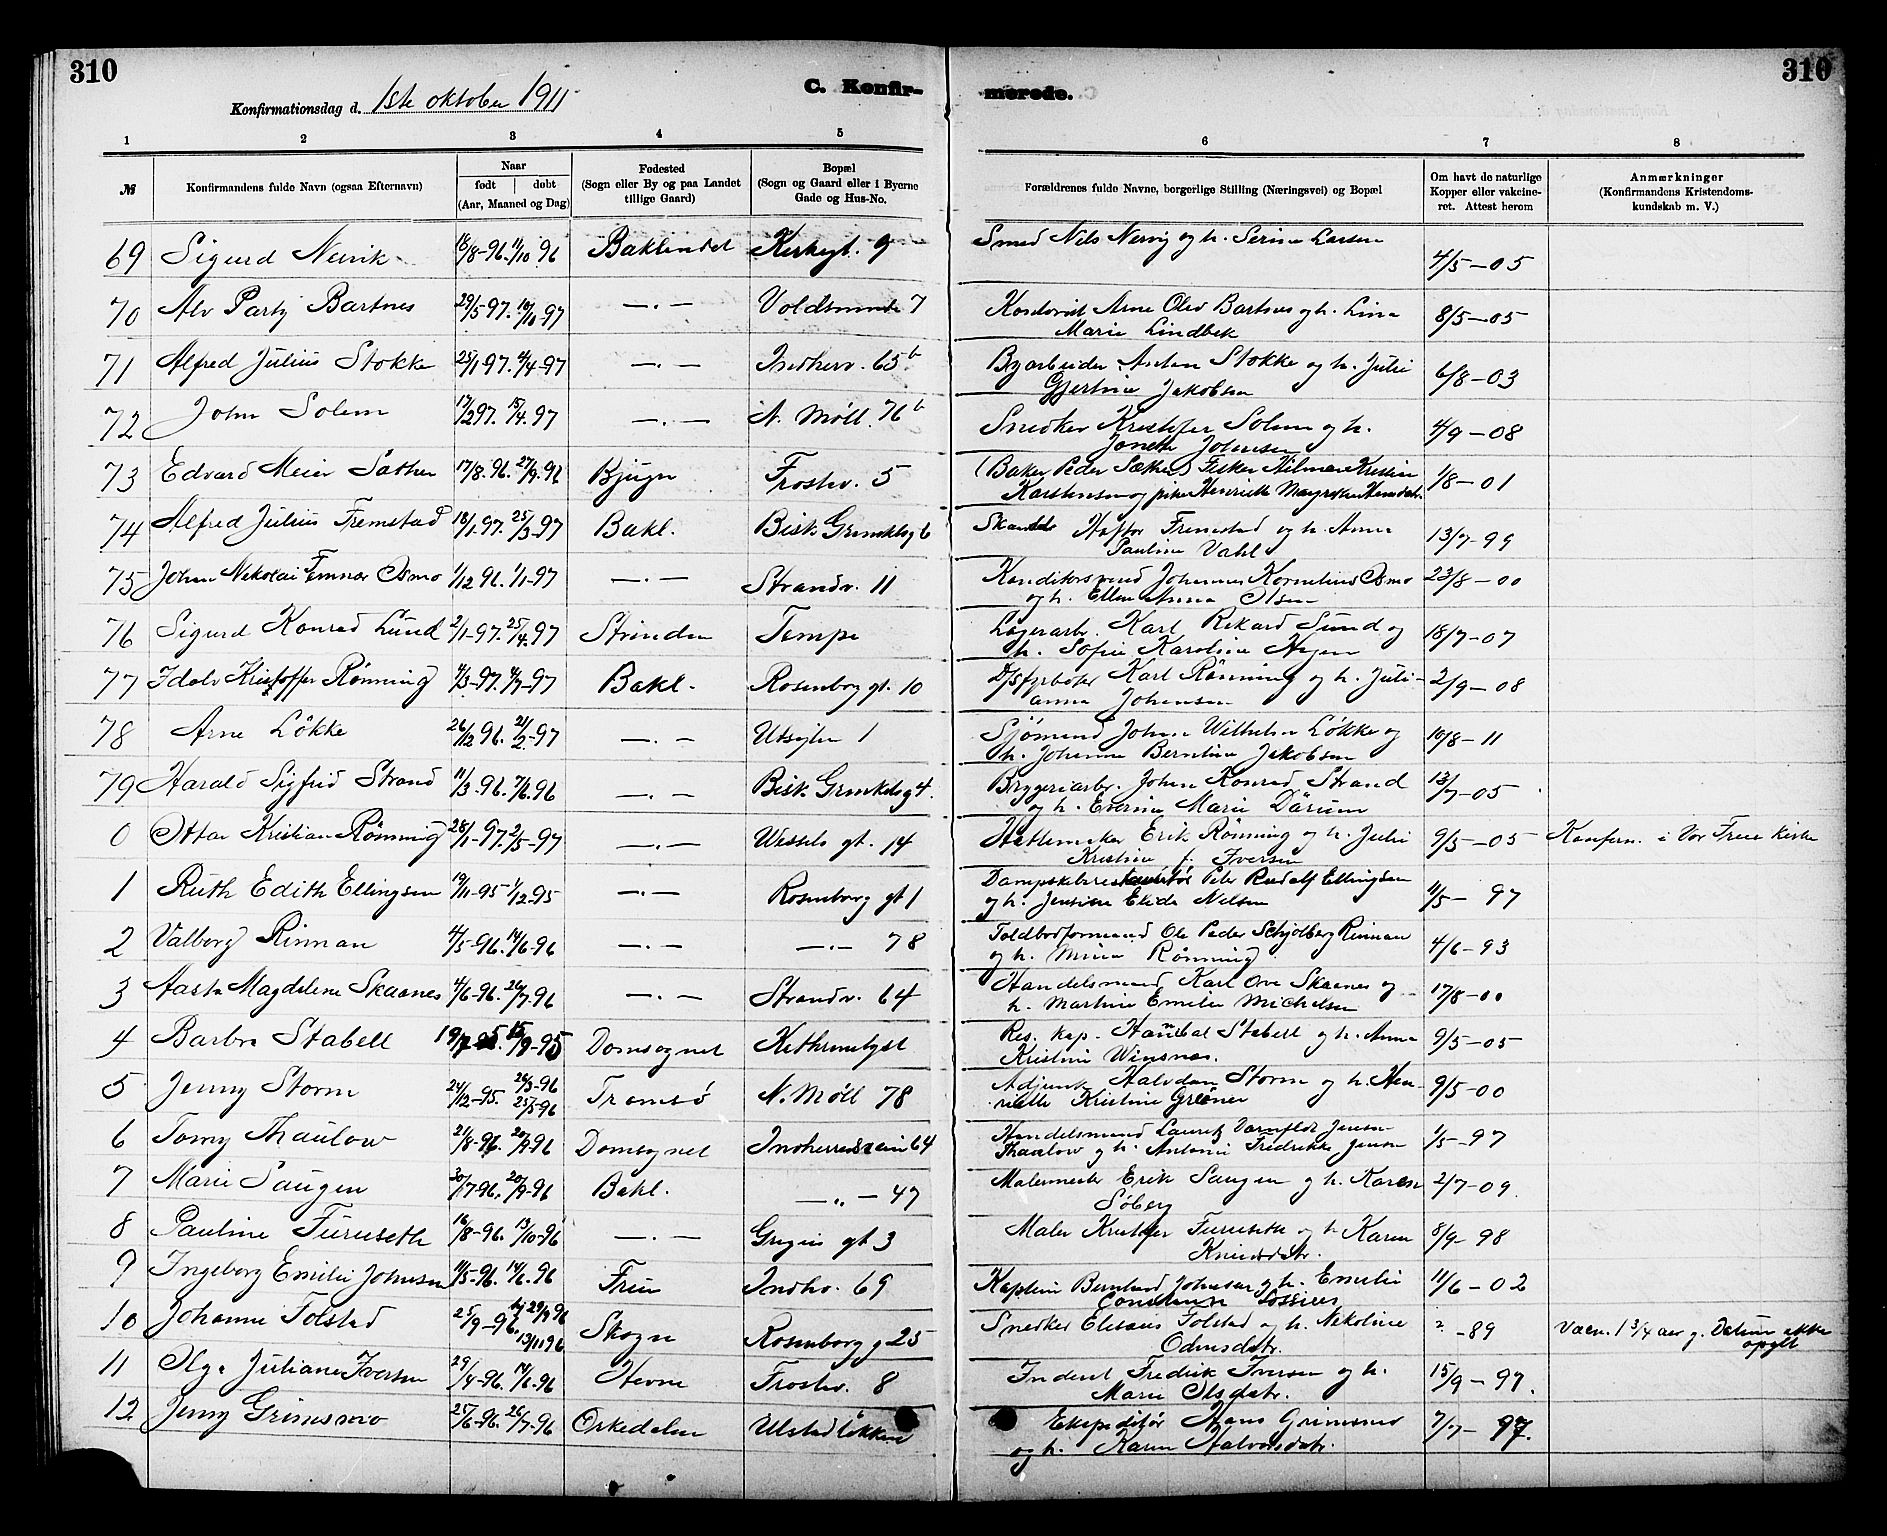 310
310
Konfirmationsdag d. 1ste oktober 1911
C. Konfir-
merede.
1 2 3 4 5 6 7 8
№ Konfirmandens fulde Navn (ogsaa Efternavn) Naar født døbt (Aar, Maaned og Dag) Fødested (Sogn eller By og paa Landet tillige Gaard) Bopæl (Sogn og Gaard eller i Byerne Gade og Hus-No. Forældrenes fulde Navne, borgerlige Stilling (Næringsvei) og Bopæl Om havt de naturlige Kopper eller vakcineret. Attest herom Anmærkninger (Konfirmandens Kristendomskundskab m. V.)
69 Sigurd Nervik 16/8-96. 11/10 96 Baklandet Kirkegt. 9 Smed Nils Nervig og h. Serine Larsen 4/5-05
70 Alv Party Bartnes 29/5-97. 10/10-97 —.— 7 Arne Olav Bartnes og h. Lina
Marie Lindbek 8/5-05
71 Alfred Julius Stokke 25/1 97. 4/4-97 —.— Indherv. 65b Byarbeider Anton Stokke og h. Julie
Gjertine Jakobsen 6/8-03
72 John Solem 17/2 97. 15/4. 97 —.— N. Møll. 76b Snedker Kristofer Solem og h.
Johnsen 4/9-08
73 Edvard Meier Sæther 17/8. 96. 27/9. 96 Bjugn Frostv. 5 (Baker Peder Sæther) Fisker Hilmar Kristian
Karstensen og pike Henriette 1/8-01
74 Alfred Julius Fremstad 18/1.97. 25/3-97 Bakl. Bisk. Grimkelsg 6 Fremstad og h. Anna
Pauline Vahl 13/7-99
75 Johan Nikolai Osmo 1/12 96. 1/1-97 —.— Strandv. 11 Konditorsvend Johannes Kornelius Osmo
og h. Ellen Anna Olsen 23/8-00
76 Sigurd Konrad Lund 2/1-97. 25/4. 97 Strinden Tempe Lagerarb. Karl Rikard Lund og
h. Sofie Karoline 18/7-07
77 Idolv Kristoffer Rønning 4/3-97. 4/7-97 Bakl. Rosenborg gt. 10 D/Sfyrbøter Karl Rønning og h. Juli-
anna Johansen 2/9-08
78 Arne Løkke 26/12 96. 21/2-97 —.— Utsigten 1 Sjømand Johan Wilhelm Løkke og
h. Johanna Berntine Jakobsen 10/8-11
79 Harald Sigfrid Strand 11/3-96. 7/6. 96 —.— Bisk. Grimkelsg 4. Bryggeriarb. Johan Konrad Strand
og h. Marie 13/7-05
0 Ottar Kristian Rønning 28/1-97. 2/5-97 —.— Wessels gt. 14 Hattemaker Erik Rønning og h. Julie
Kristine f. Iversen 9/5-05 Konfirm. i Vor Frue kirke
1 Ruth Edith Ellingsen 19/11-95 1/12-95 —.— Rosenborg gt 1 Peter Rudolf Ellingsen
og h. Jensine Elida Nilsen 11/5- 97
2 Valborg Rinnan 4/5-96. 14/6-96 —.— —.— 78 Toldbodformand Ole Peder Schjølberg Rinnan
og h. Mina Rønning 4/6-93
3 Aasta Magdalene Skaanes 4/6-96. 26/7-96 —.— Strandv. 64 Handelsmand Karl Ove Skaanes og
h. Martine Emilie Michelsen 17/8-00
4 Barbra Stabell 15/9-95 Domsognet Res. kap. Hanibal Stabell og h. Anna
Kristine Winsnes. 9/5-05
5 Jenny Storm 24/12-95. 25/5-96 Tromsø N. Møll 78 Adjunkt Halvdan Storm og h. Hen-
riette Kristine Grøner 9/5-00
6 Tomy Thaulow 21/8-96. 20/9-96 Domsognet Indherredsveien 64 Handelsmand Lauritz Jensen
Thaulow og h. Antonie Fredrikke Jensen 1/5-97
7 Marie Saugen 30/7-96. 20/9-96 Bakl. —„— 47 Malermester Erik Saugen og h. Karen
Søberg 2/7-09.
8 Pauline Furuseth 16/8-96. 13/10-96 —.— gt 3 Maler Kristofer Furuseth og h Karen
Knudsdatr. 8/9-98
9 Ingeborg Emilie Johnsen 11/5-96. 14/6. 96 Indhv. 69 Kaptein Bernhard Johnsen og h. Emilie
11/6-02
10 Johanne Tolstad 25/9-96. hj 29/9 96
13/11 96 Skogn Rosenborg g 25 Snedker Elisæus Tolstad og h. Nikoline
Odinsdatr. ?-89 Vacn. 1 3/4 aar g. Datum ikke
opgit
11 Olga Juliane Iversen 29/4-96. 14/6-96 Hevne Frostv. 8 Fredrik Iversen og h.
Marie Olsdatr. 15/9-97.
12 Jenny Grimsmo 25/6-96. 26/7-96 Orkedalen Ulstadløkken Ekspeditør Hans Grimsmo
og h. Karen Halvorsdatr. 7/7-97.